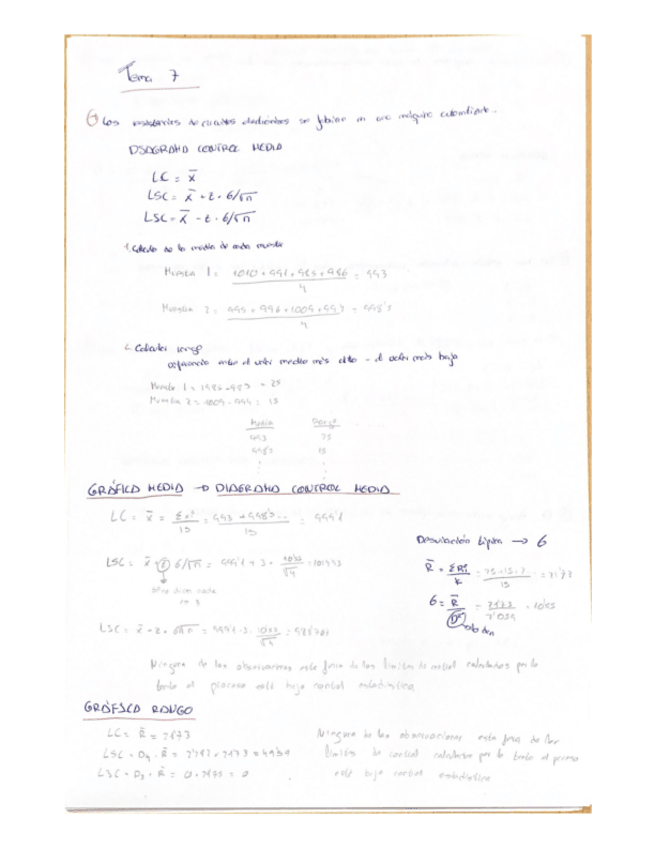 Tema 7
Los resistencias de circuitos electrónicos se fabrican en una máquina automática.
DIAGRAMA CONTROL MEDIA
LC = x̄
LSC = x̄ + z · 6/√n
LSC = x̄ - z · 6/√n
1. Calculo de la media de cada muestra
Muestra 1 = 1010 + 991 + 985 + 986 / 4 = 993
Muestra 2 = 995 + 996 + 1009 + 994 / 4 = 998'5
2. Calcular rango
diferencia entre el valor medio más alto - el valor más bajo
Muestra 1 = = 25
Muestra 2 = 1009 - 994 = 15
Media Rango
993 25
998'5 15
GRÁFICA MEDIA → DIAGRAMA CONTROL MEDIA
LC = x̄ = / 15 = 993 + 998'5... / 15 = 999'1
Desviación típica → 6
LSC = x̄ + z 6/√n = 999'1 + 3 · / √4
R̄ = ΣRi / K = / 15 = 21'73
si no dicen nada
es 3
6 = R̄ / = / 2'059 = 10'55
tabla
LSC = x̄ - z · 6/√n = 999'1 - 3 · / √4
Ninguna de las observaciones está fuera de los límites de control calculados por lo
tanto el proceso está bajo control estadístico.
GRÁFICO RANGO
LC = R̄ = 21'73
LSC = D4 · R̄ =
LSC = D3 · R̄ = 0 · 21'73 = 0
Ninguna de las observaciones esta fuera de los
límites de control calculados por lo tanto el proceso
está bajo control estadístico